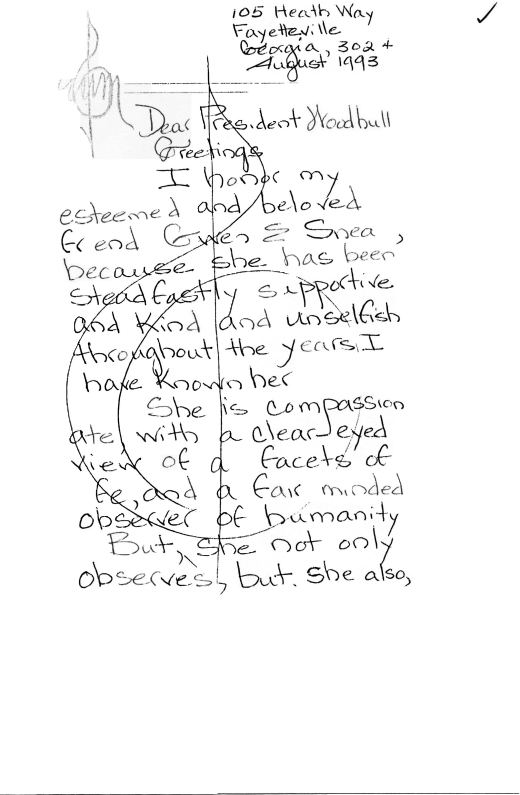 105 Heath Way
Fayetteville
Georgia, 302 4
August 1993
Dear President Woodbull
Greetings
I honor my
esteemed and beloved
friend Gwen E Snea,
because she has been
Steadfastly supportive
and Kind and unselfish
throughout the years I
have Known her
She is compassion
ate, with a clear-eyed
view of a facets of
fe, and a fair minded
observer of humanity
But, she not only
observes, but. she also,